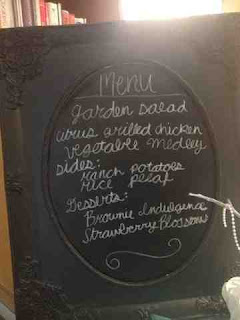 Menu
garden salad
citrus grilled chicken
vegetable medley
sides:
ranch potatoes
rice pilaf
Desserts:
Brownie Indulgence
Strawberry Blossom